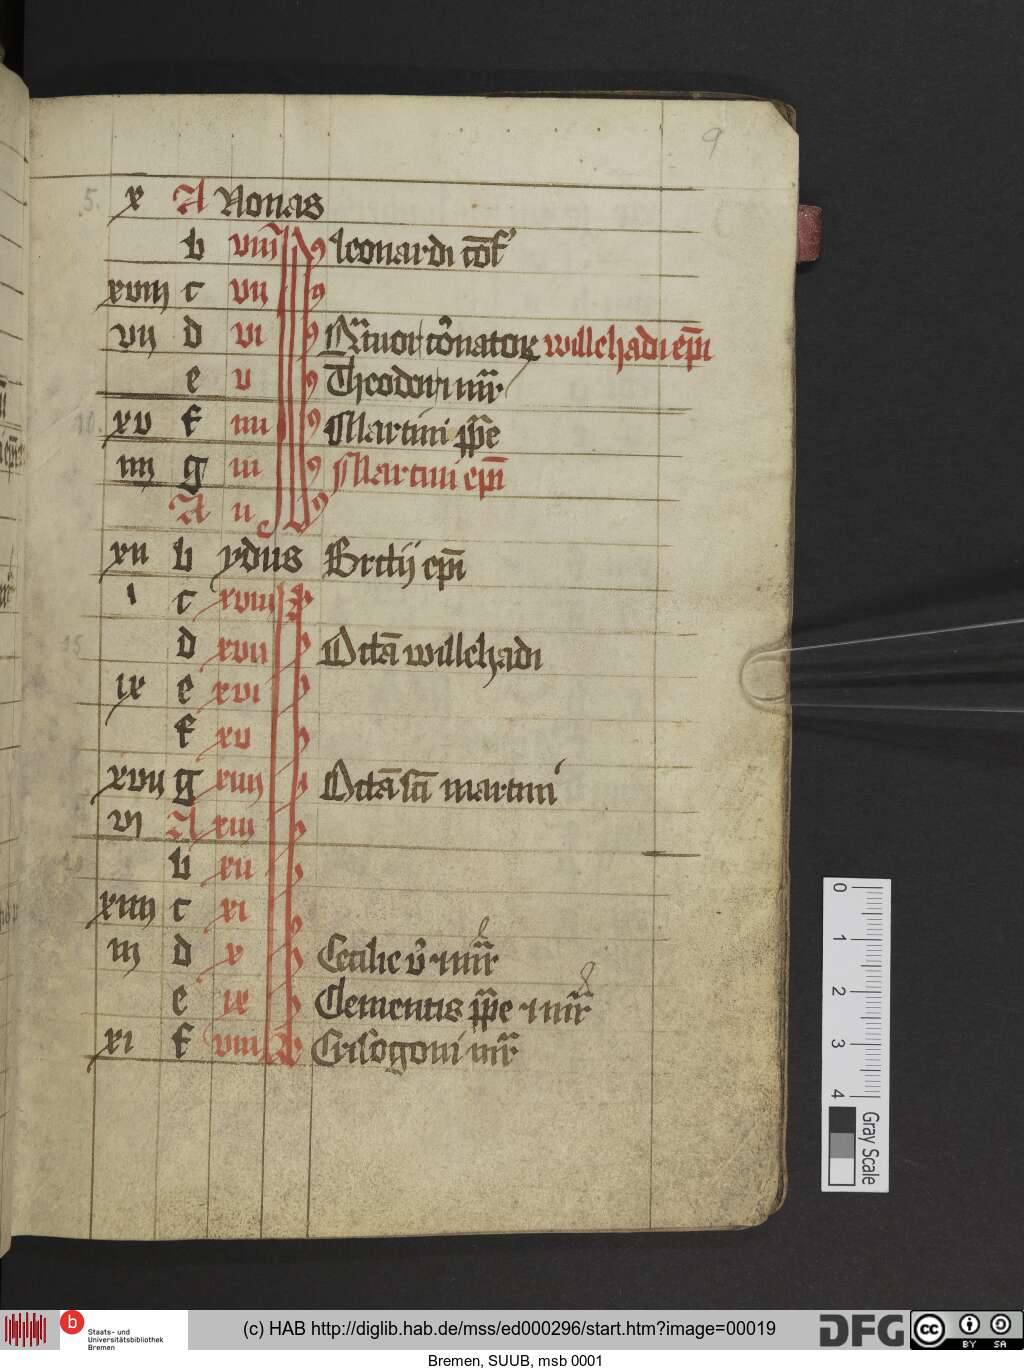 9
5. x A Nonas
b viii 9 leonardi co͞f
xviii c vii 9
vii d vi 9 Quatuor co͞nator willehadi ep͞i
e v 9 Theodori mr͞
10. xv f iiii 9 Martini pp͞e
iiii g iii 9 Martini ep͞i
A ii 9
xii b ydus Brictij ep͞i
i c xviii
15 d xvii Octa͞ willehadi
ix e xvi
f xv
xvii g xiiii Octa͞ sc͞i martini
vi A xiii
20 b xii
xiiii c xi
iii d x Cecilie v͞ ⁊ mr͞
e ix Clementis pp͞e ⁊ mr͞
xi f viii Crisogoni mr͞
0
1
2
3
4
Gray Scale
b
Staats- und
Universitätsbibliothek
Bremen
(c) HAB http://diglib.hab.de/mss/ed000296/start.htm?image=00019
DFG
cc
BY SA
Bremen, SUUB, msb 0001